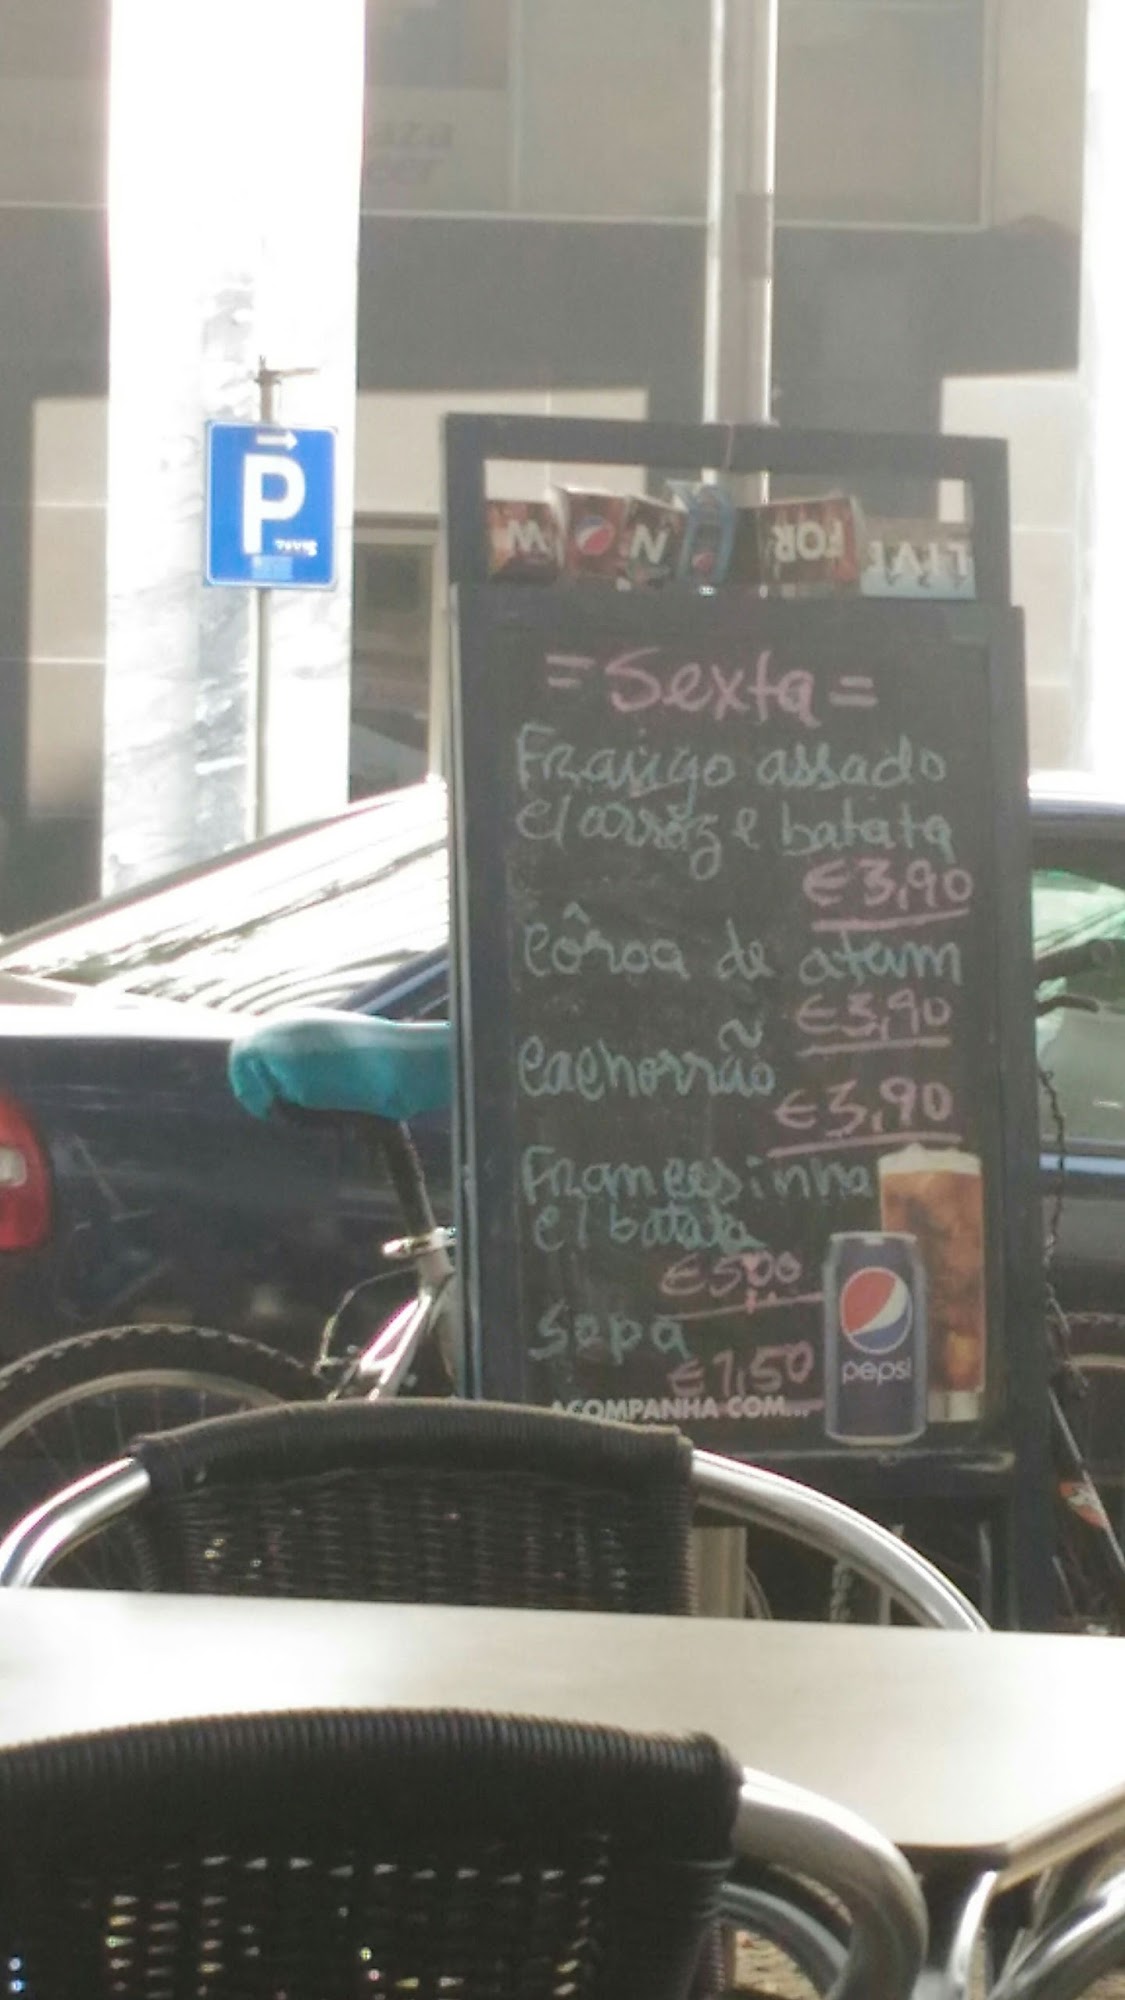 P
TAXIS
= Sexta =
Frango assado
c/ arroz e batata
€3,90
Côroa de atum
€3,90
Cachorrão
€3,90
Francesinha
c/ batata
€5,00
Sopa
€1,50
ACOMPANHA COM...
pepsi